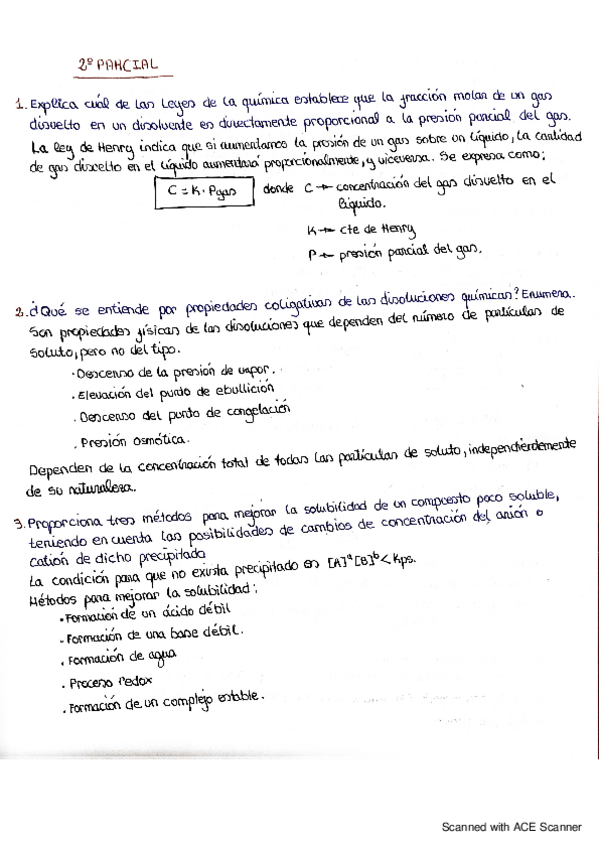 2º PARCIAL
1. Explica cuál de las Leyes de la química establece que la fracción molar de un gas
disuelto en un disolvente es directamente proporcional a la presión parcial del gas.
La Ley de Henry indica que si aumentamos la presión de un gas sobre un líquido, la cantidad
de gas disuelto en el líquido aumentará proporcionalmente, y viceversa. Se expresa como:
C = K · Pgas donde C → concentración del gas disuelto en el
líquido.
K → cte de Henry
P → presión parcial del gas.
2. ¿Qué se entiende por propiedades coligativas de las disoluciones químicas? Enumera.
Son propiedades físicas de las disoluciones que dependen del número de partículas de
soluto, pero no del tipo.
· Descenso de la presión de vapor.
· Elevación del punto de ebullición
· Descenso del punto de congelación
· Presión osmótica.
Dependen de la concentración total de todas las partículas de soluto, independientemente
de su naturaleza.
3. Proporciona tres métodos para mejorar la solubilidad de un compuesto poco soluble,
teniendo en cuenta las posibilidades de cambios de concentración del anión o
catión de dicho precipitado
La condición para que no exista precipitado es [A]ᵃ[B]ᵇ < Kps.
Métodos para mejorar la solubilidad:
· Formación de un ácido débil
· Formación de una base débil.
· Formación de agua
· Proceso redox
· Formación de un complejo estable.
Scanned with ACE Scanner